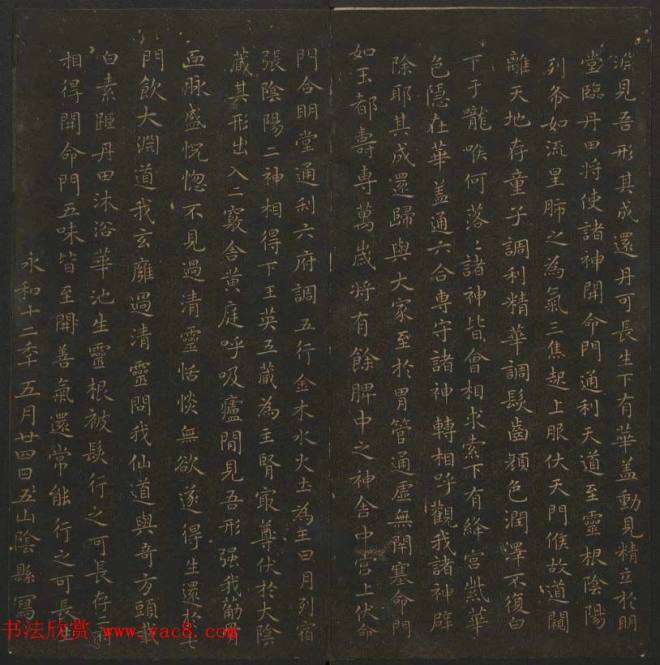 淵見吾形其成還丹可長生下有華蓋動見精立於明
堂臨丹田將使諸神開命門通利天道至靈根陰陽
列布如流星肺之為氣三焦起上服伏天門候故道闚
離天地存童子調利精華調髮齒顏色潤澤不復白
下于嚨喉何落落諸神皆會相求索下有絳宮紫華
色隱在華蓋通六合專守諸神轉相呼觀我諸神辟
除耶其成還歸與大家至於胃管通虛無閉塞命門
如玉都壽專萬歲將有餘脾中之神舍中宮上伏命
門合明堂通利六府調五行金木水火土為王日月列宿
張陰陽二神相得下玉英五藏為主腎最尊伏於大陰
藏其形出入二竅舍黃庭呼吸廬間見吾形强我筋骨
血脈盛恍惚不見過清靈恬惔無欲遂得生還於七
門飲大淵道我玄廱過清靈問我仙道與奇方頭載
白素距丹田沐浴華池生靈根被髮行之可長存二府
相得開命門五味皆至開善氣還常能行之可長生
永和十二年五月廿四日五山陰縣寫
书法欣赏 www.yac8.com